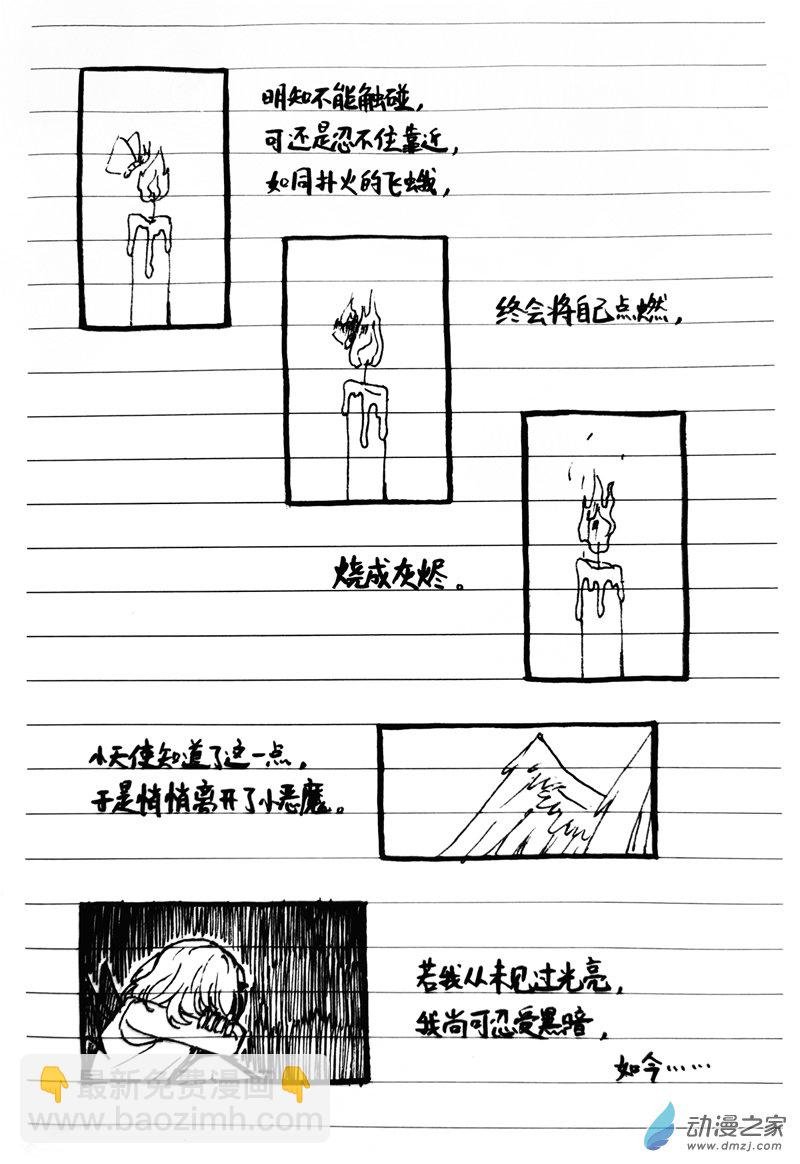 明知不能触碰，
可还是忍不住靠近，
如同扑火的飞蛾，
终会将自己点燃，
烧成灰烬。
小天使知道了这一点，
于是悄悄离开了小恶魔。
若我从未见过光亮，
我尚可忍受黑暗，
如今……
👇最新免费漫画👇
www.baozimh.com
动漫之家
www.dmzj.com